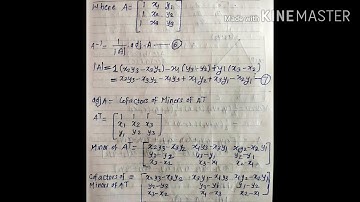 Where A = [1 x1 y1
1 x2 y2
1 x3 y3]
Made with
KINEMASTER
A-1 = 1/|A| . adj. A — (6)
|A| = 1(x2y3-x3y2) - x1(y3-y2) + y1(x3-x2)
= x2y3 - x3y2 - x1y3 + x1y2 + x3y1 - x2y1 — (7)
adjA = Cofactors of Minors of AT
AT = [1 1 1
x1 x2 x3
y1 y2 y3]
Minor of AT = [x2y3-x3y2 x1y3-x3y1 x1y2-x2y1
y3-y2 y3-y1 y2-y1
x3-x2 x3-x1 x2-x1]
Cofactors of = [x2y3-x3y2 x3y1-x1y3 x1y2-x2y1
Minors of AT y2-y3 y3-y1 y1-y2
x3-x2 x1-x3 x2-x1]